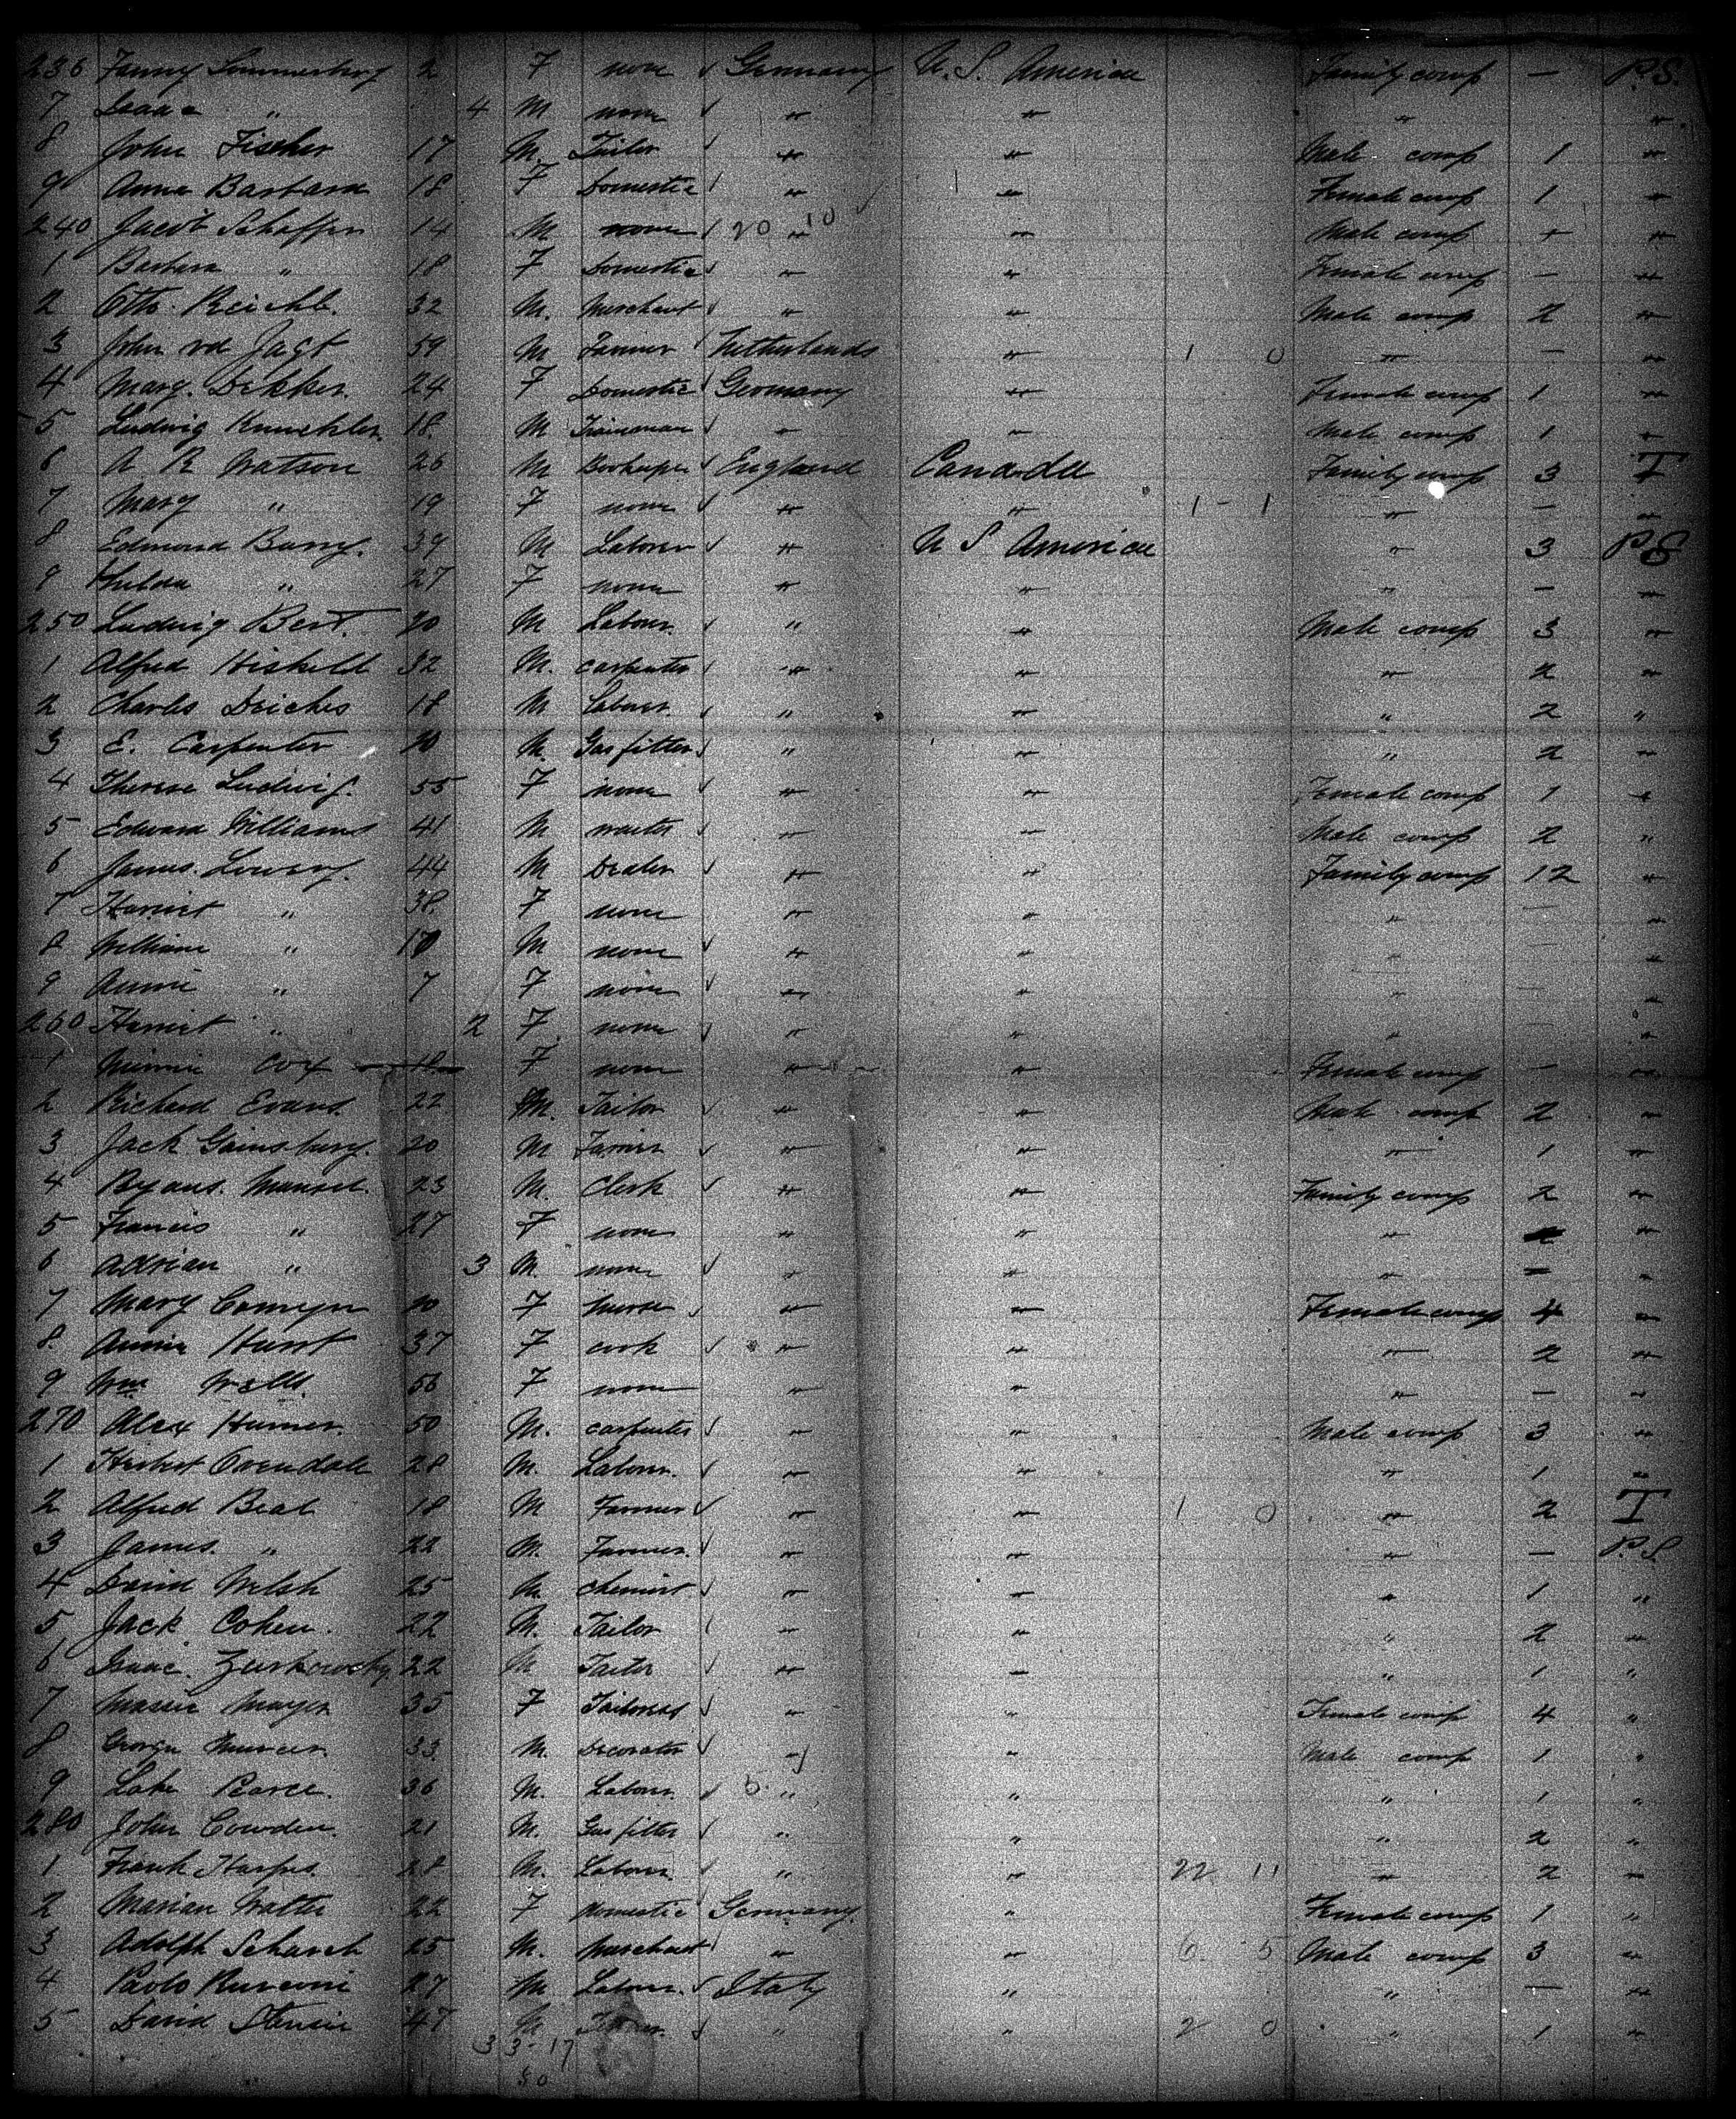 236 Fanny Simmerberg 2 F none √ Germany U.S. America Family comp — P.S.
7 Isaac " 4 M none √ " " " "
8 John Fischer 17 M. Tailor √ " " Male comp 1 "
9 Anna Barbara 18 F Domestic √ " " Female comp 1 "
240 Jacob Schaffer 14 M none √ 20 " 10 " Male comp + "
1 Barbara " 18 F Domestic √ " " Female comp — "
2 Otto Reichle. 32 M. Merchant √ " " Male comp 2 "
3 John vd Jagt 59 M Farmer √ Netherlands " 1 0 " — "
4 Marg. Dekker. 24 F Domestic √ Germany " Female comp 1 "
5 Ludwig 18. M √ " " Male comp 1 "
6 A R Watson 26 M Bookeeper √ England Canada Family comp 3 T
7 Mary " 19 F none √ " " 1 - 1 " — "
8 Edmond Barry. 39 M Laborer √ " U S America " 3 P.S
9 " 27 F none " " " — "
250 Ludwig Bert. 20 M Labour. √ " " Male comp 3 "
1 Alfred 32 M. carpenter √ " " " 2 "
2 Charles Deiches 18 M Labour. √ " " " 2 "
3 E. Carpenter 20 M. Gas fitter √ " " " 2 "
4 Therese Ludwig. 55 F none √ " " Female comp 1 "
5 Edward Williams 41 M waiter √ " " Male comp 2 "
6 James. Lowery. 44 M Dealer √ " " Family comp 12 "
7 Harriet " 38. F none " " " — "
8 William " M none √ " " " — "
9 Annie " 7 F none √ " " " — "
260 Harriet " 2 F none √ " " " — "
1 Minnie Cox 18 F none " " Female comp — "
2 Richard Evans. 22 M. Tailor √ " " Male comp 2 "
3 Jack Gainsburg. 20 M √ " " " 1 "
4 Mansel. 23 M. Clerk √ " " Family comp 2 "
5 Francis " 27 F none " " " "
6 Adrian " 3 M. none √ " " " — "
7 Mary Comyn 20 F nurse √ " " Female comp 4 "
8. Annie Hurst 37 F cook √ " " " 2 "
9 Wm Wells. 56 F none " " " — "
270 Alex 50 M. carpenter √ " " Male comp 3 "
1 Herbert Ovendale 28 M. Labour. √ " " " 1 "
2 Alfred Beal 18 M Farmer √ " " 1 0 " 2 T
3 James. " 22 M. Farmer. √ " " " — P.S.
4 David Welsh 25 M chemist √ " " " 1 "
5 Jack Cohen. 22 M. Tailor " " " 2 "
6 Isaac. 22 M Tailor √ " " " 1 "
7 Mayer 35 F Tailoress √ " " Female comp 4 "
8 George 33 M. Decorator √ " " Male comp 1 "
9 Pearce. 36 M. Labour √ " " " 1 "
280 John Cowden. 21 M. Gas fitter √ " " " 2 "
1 Frank 28 M. Labour √ " " 22 11 " 2 "
2 Marian Walter 22 F Domestic √ Germany. " Female comp 1 "
3 Adolph 25 M. Merchant √ " " 6 5 Male comp 3 "
4 Paolo Rusconi 27 M Labour. √ Italy " " — "
5 David 47 M √ " " 2 0 " 1 "
33-17
50